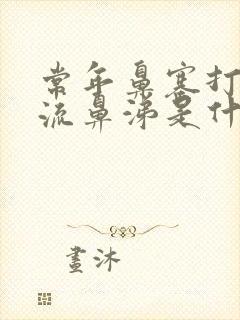 常年鼻塞打
流鼻涕是什
画沐